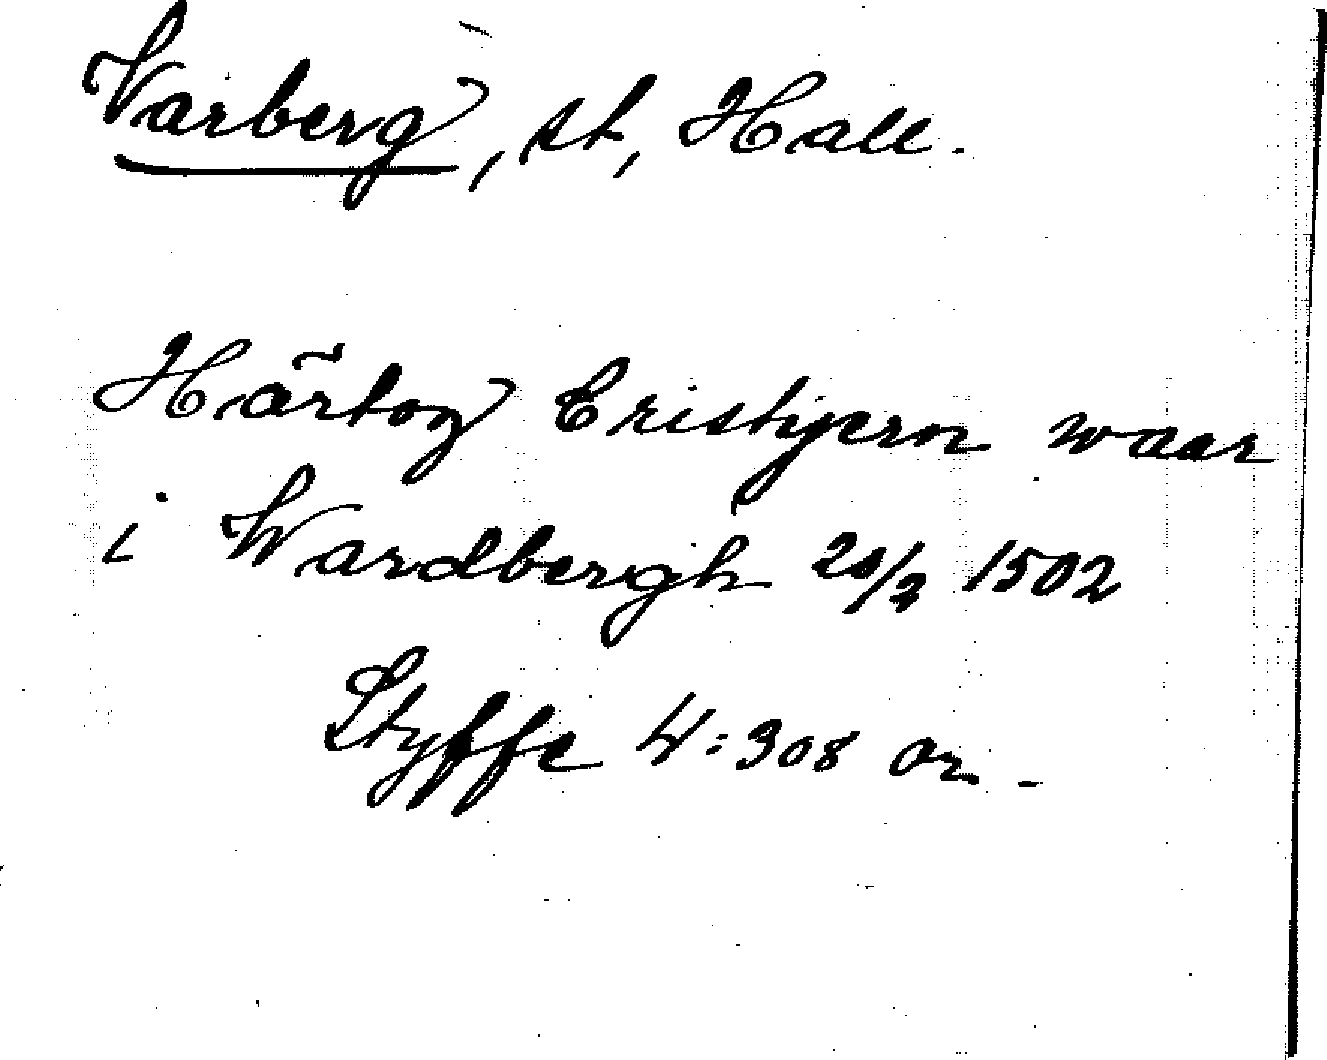 Varberg, st, Hall.
Härtog Cristjern waar
i Wardbergh 20/2 1502
Styffe 4:308 or.